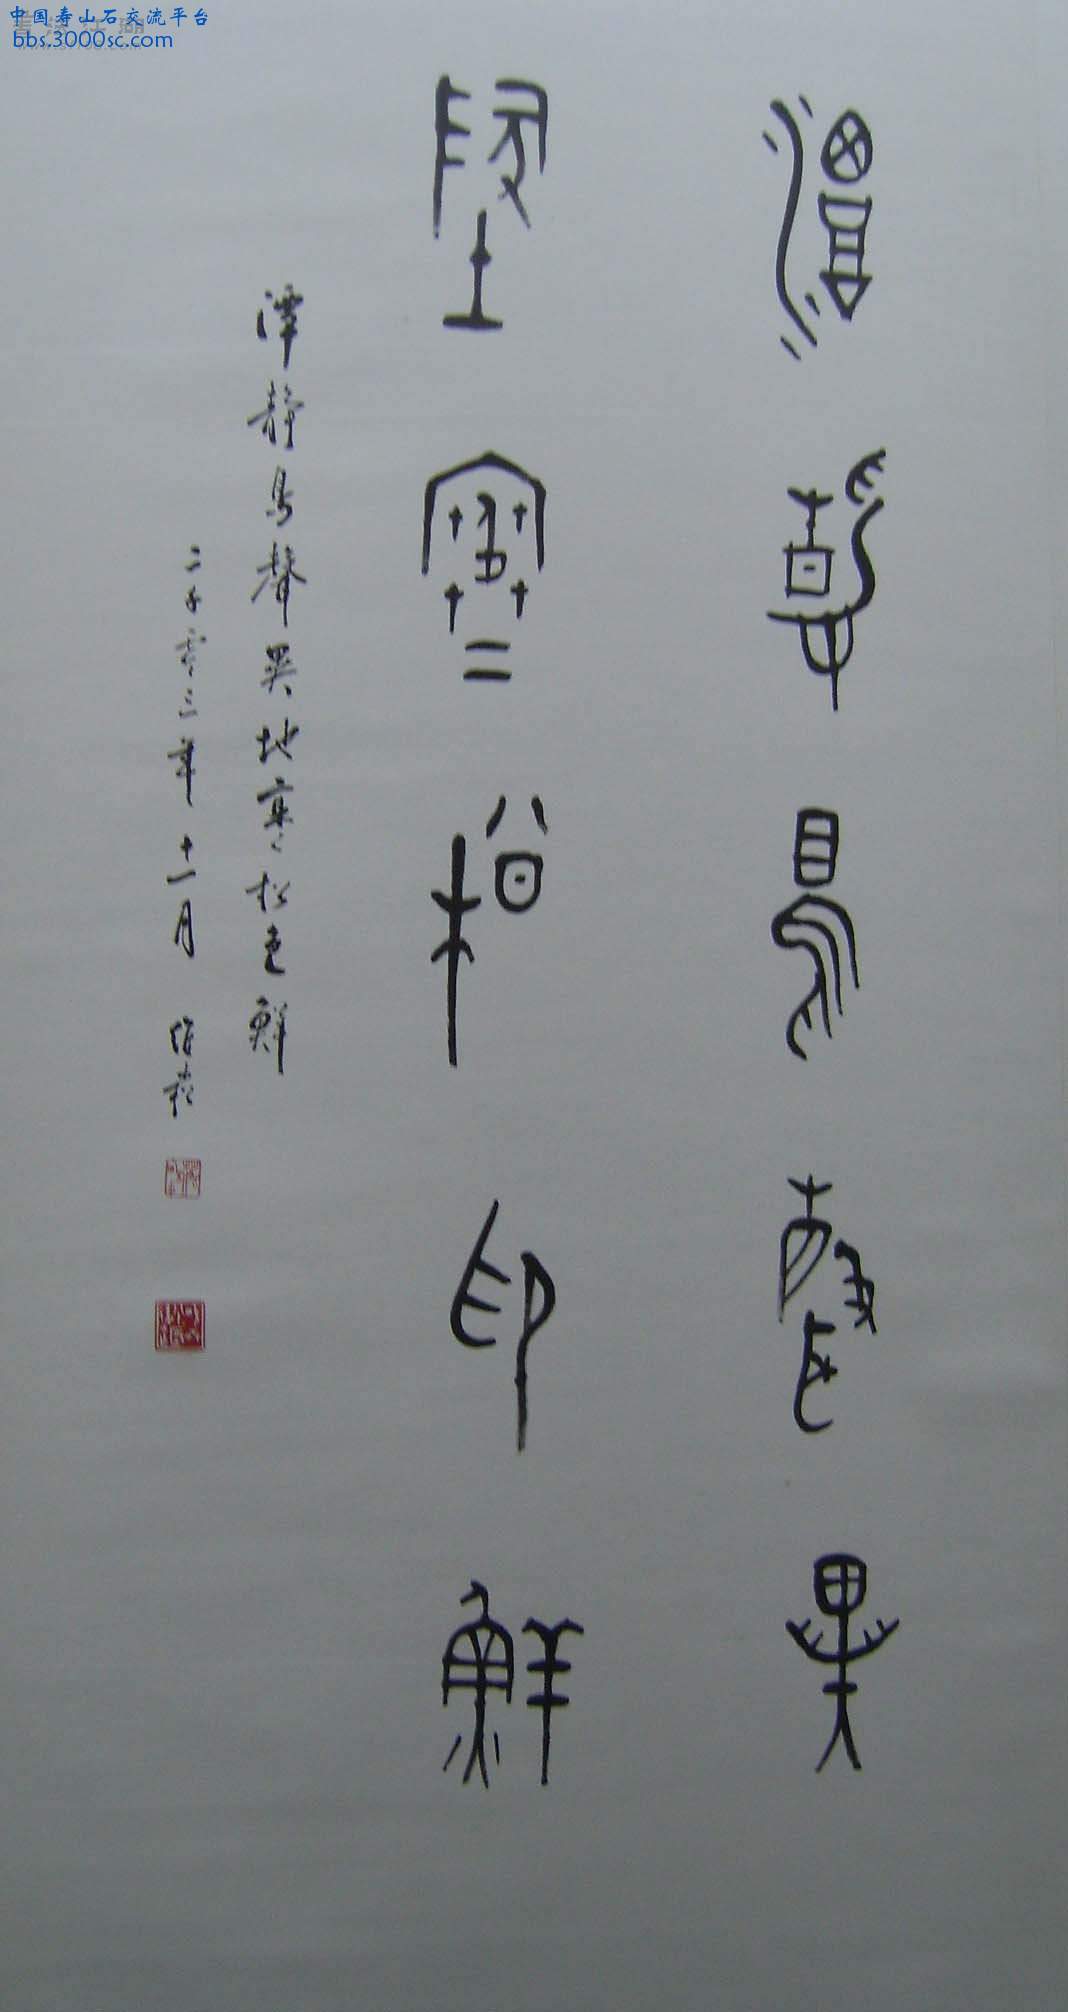 中国寿山石交流平台
bbs.3000sc.com
潭静鸟聲異
地寒松色鮮
潭静鸟聲異地寒松色鮮
二千零三年十一月